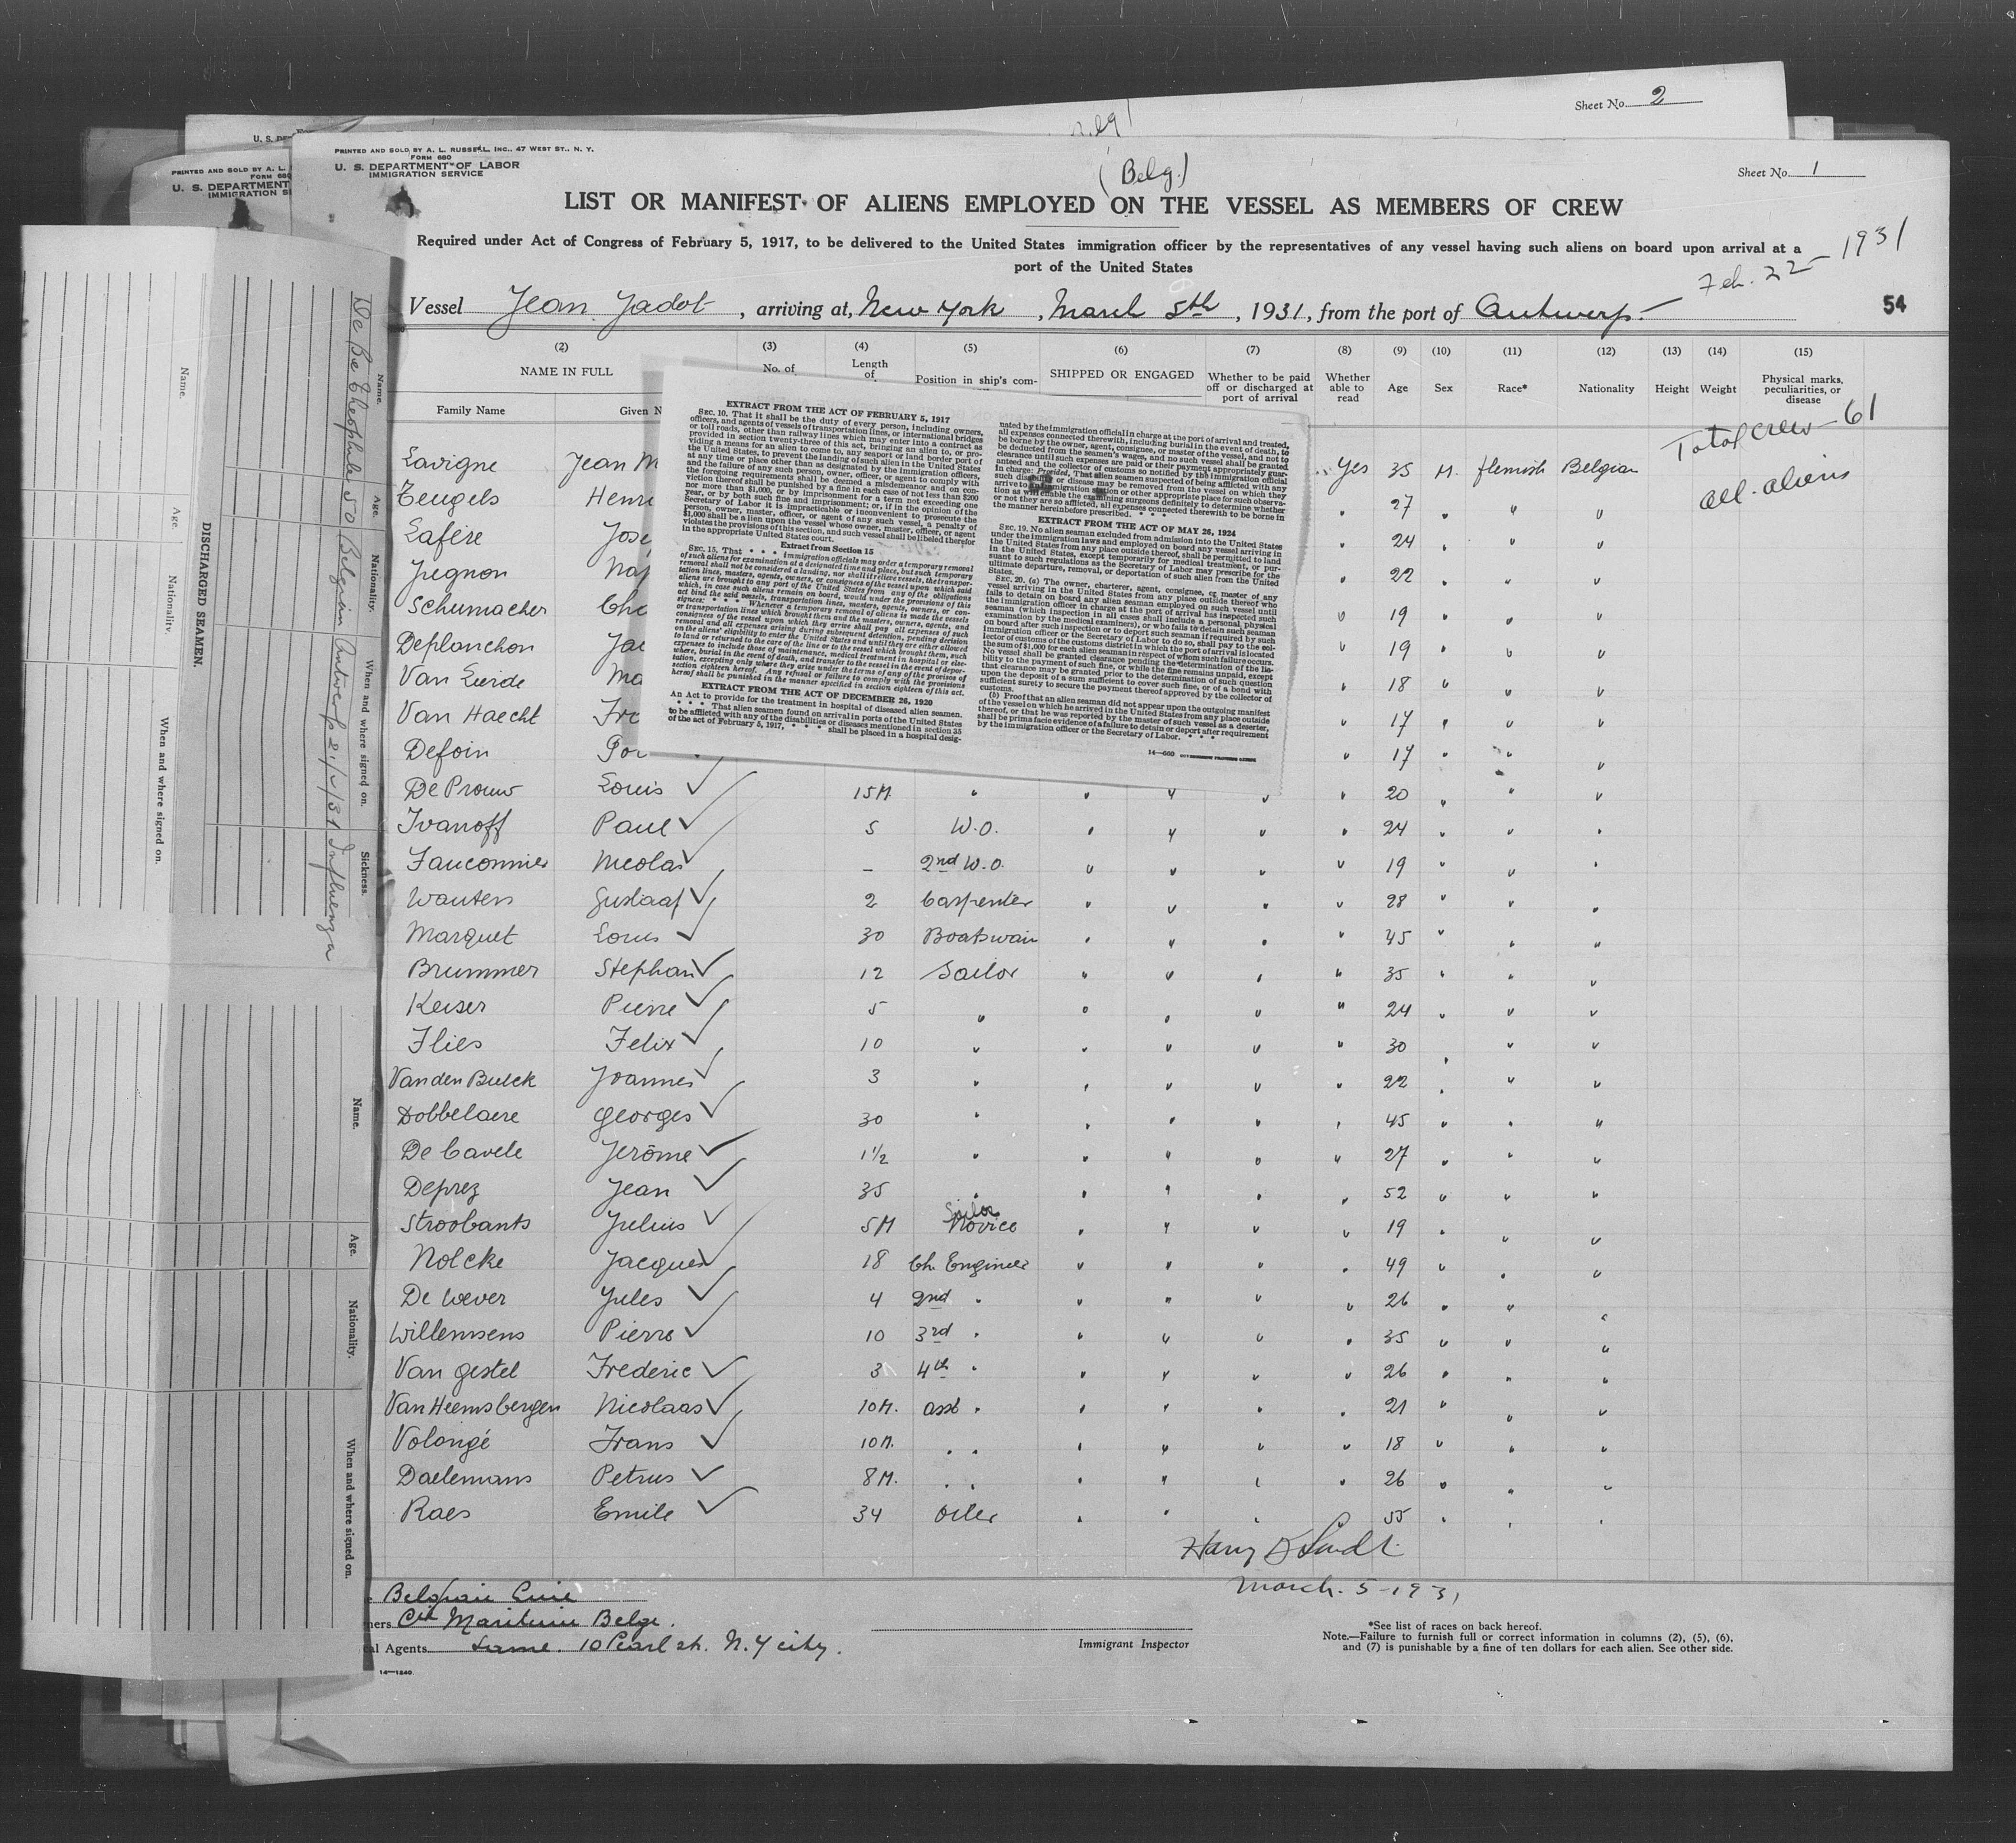 Sheet No. 2
Belg
U. S. DE
PRINTED AND SOLD BY A. L.
FORM 680
U. S. DEPARTMENT
IMMIGRATION S
PRINTED AND SOLD BY A. L. RUSSELL, INC., 47 WEST ST., N. Y.
FORM 680
U. S. DEPARTMENT OF LABOR
IMMIGRATION SERVICE
(Belg.)
Sheet No. 1
LIST OR MANIFEST OF ALIENS EMPLOYED ON THE VESSEL AS MEMBERS OF CREW
Required under Act of Congress of February 5, 1917, to be delivered to the United States immigration officer by the representatives of any vessel having such aliens on board upon arrival at a
port of the United States
Feb. 22 - 1931
Vessel Jean Jadot, arriving at, New York, March 5th, 1931, from the port of Antwerp.-
54
(2) (3) (4) (5) (6) (7) (8) (9) (10) (11) (12) (13) (14) (15)
NAME IN FULL No. of Length of Position in ship's com- SHIPPED OR ENGAGED Whether to be paid off or discharged at port of arrival Whether able to read Age Sex Race* Nationality Height Weight Physical marks, peculiarities, or disease
Family Name Given N
Total crew - 61
all aliens
Lavigne Jean M Yes 35 M. flemish Belgian
Teugels Henri 27 " " "
Lafère Jose 24 " " "
Pegnon Nap 22 " "
Schumacher Cha " 19 " " "
Deplanchon Jac " 19 " " "
Van Eeirde Ma " 18 " " "
Van Haecht Fra " 17 " " "
Defoin Por " 17 " " "
De Prouw Louis ✓ 15M. " " " " " 20 " " "
Ivanoff Paul ✓ 5 W.O. " " " " 24 " " "
Fauconnier Nicolas ✓ - 2nd W.O. " " " " 19 " " "
Wauters Gustaaf ✓ 2 Carpenter " " " " 28 " " "
Marquet Louis ✓ 30 Boatswain " " " " 45 " " "
Brummer Stephan ✓ 12 Sailor " " " " 35 " " "
Keiser Pierre ✓ 5 " " " " " 24 " " "
Flies Felix ✓ 10 " " " " " 30 " " "
Van den Bulck Joannes ✓ 3 " " " " " 22 " " "
Dobbelaere Georges ✓ 30 " " " " " 45 " " "
De Cavele Jerôme ✓ 1½ " " " " " 27 " " "
Deprez Jean ✓ 35 " " " " " 52 " " "
Stroobants Julius ✓ 5M Sailor Novice " " " " 19 " " "
Nolcke Jacques ✓ 18 Ch. Engineer " " " " 49 " " "
De Wever Jules ✓ 4 2nd " " " " " 26 " " "
Willemsens Pierre ✓ 10 3rd " " " " " 35 " " "
Van Gestel Frederic ✓ 3 4th " " " " " 26 " " "
Van Heemsbergen Nicolaas ✓ 10M. asst " " " " " 21 " " "
Volongé Frans ✓ 10M. " " " " " " 18 " " "
Daelemans Petrus ✓ 8M. " " " " " " 26 " " "
Raes Emile ✓ 34 Oiler " " " " 55 " " "
March. 5-1931
Belgian Line
ners Cie Maritime Belge.
al Agents Same. 10 Pearl st. N. Y city.
14—1240
Immigrant Inspector
*See list of races on back hereof.
Note.—Failure to furnish full or correct information in columns (2), (5), (6),
and (7) is punishable by a fine of ten dollars for each alien. See other side.
EXTRACT FROM THE ACT OF FEBRUARY 5, 1917
SEC. 10. That it shall be the duty of every person, including owners,
officers, and agents of vessels of transportation lines, or international bridges
or toll roads, other than railway lines which may enter into a contract as
provided in section twenty-three of this act, bringing an alien to, or pro-
viding a means for an alien to come to, any seaport or land border port of
the United States, to prevent the landing of such alien in the United States
at any time or place other than as designated by the immigration officers,
and the failure of any such person, owner, officer, or agent to comply with
the foregoing requirements shall be deemed a misdemeanor and on con-
viction thereof shall be punished by a fine in each case of not less than $200
nor more than $1,000, or by imprisonment for a term not exceeding one
year, or by both such fine and imprisonment; or, if in the opinion of the
Secretary of Labor it is impracticable or inconvenient to prosecute the
person, owner, master, officer, or agent of any such vessel, a penalty of
$1,000 shall be a lien upon the vessel whose owner, master, officer, or agent
violates the provisions of this section, and such vessel shall be libeled therefor
in the appropriate United States court.
Extract from Section 15
SEC. 15. That * * * immigration officials may order a temporary removal
of such aliens for examination at a designated time and place, but such temporary
removal shall not be considered a landing, nor shall it relieve vessels, the transpor-
tation lines, masters, agents, owners, or consignees of the vessel upon which said
aliens are brought to any port of the United States from any of the obligations
which, in case such aliens remain on board, would under the provisions of this
act bind the said vessels, transportation lines, masters, agents, owners, or con-
signees: * * * Whenever a temporary removal of aliens is made the vessels
or transportation lines which brought them and the masters, owners, agents, and
consignees of the vessel upon which they arrive shall pay all expenses of such
removal and all expenses arising during subsequent detention, pending decision
on the aliens' eligibility to enter the United States and until they are either allowed
to land or returned to the care of the line or to the vessel which brought them, such
expenses to include those of maintenance, medical treatment in hospital or else-
where, burial in the event of death, and transfer to the vessel in the event of depor-
tation, excepting only where they arise under the terms of any of the provisos of
section eighteen hereof. Any refusal or failure to comply with the provisions
hereof shall be punished in the manner specified in section eighteen of this act.
EXTRACT FROM THE ACT OF DECEMBER 26, 1920
An Act to provide for the treatment in hospital of diseased alien seamen.
* * * That alien seamen found on arrival in ports of the United States
to be afflicted with any of the disabilities or diseases mentioned in section 35
of the act of February 5, 1917, * * * shall be placed in a hospital desig-
nated by the immigration official in charge at the port of arrival and treated,
all expenses connected therewith, including burial in the event of death, to
be borne by the owner, agent, consignee, or master of the vessel, and not to
be deducted from the seamen's wages, and no such vessel shall be granted
clearance until such expenses are paid or their payment appropriately guar-
anteed and the collector of customs so notified by the immigration official
in charge: Provided, That alien seamen suspected of being afflicted with any
such disability or disease may be removed from the vessel on which they
arrive to immigration station or other appropriate place for such observa-
tion as will enable the examining surgeons definitely to determine whether
or not they are so afflicted, all expenses connected therewith to be borne in
the manner hereinbefore prescribed. * * *
EXTRACT FROM THE ACT OF MAY 26, 1924
SEC. 19. No alien seaman excluded from admission into the United States
under the immigration laws and employed on board any vessel arriving in
the United States from any place outside thereof, shall be permitted to land
in the United States, except temporarily for medical treatment, or pur-
suant to such regulations as the Secretary of Labor may prescribe for the
ultimate departure, removal, or deportation of such alien from the United
States.
SEC. 20. (a) The owner, charterer, agent, consignee, or master of any
vessel arriving in the United States from any place outside thereof who
fails to detain on board any alien seaman employed on such vessel until
the immigration officer in charge at the port of arrival has inspected such
seaman (which inspection in all cases shall include a personal physical
examination by the medical examiners), or who fails to detain such seaman
on board after such inspection or to deport such seaman if required by such
immigration officer or the Secretary of Labor to do so, shall pay to the col-
lector of customs of the customs district in which the port of arrival is located
the sum of $1,000 for each alien seaman in respect of whom such failure occurs.
No vessel shall be granted clearance pending the determination of the lia-
bility to the payment of such fine, or while the fine remains unpaid, except
that clearance may be granted prior to the determination of such question
upon the deposit of a sum sufficient to cover such fine, or of a bond with
sufficient surety to secure the payment thereof approved by the collector of
customs.
(b) Proof that an alien seaman did not appear upon the outgoing manifest
of the vessel on which he arrived in the United States from any place outside
thereof, or that he was reported by the master of such vessel as a deserter,
shall be prima facie evidence of a failure to detain or deport after requirement
by the immigration officer or the Secretary of Labor. * * *
14—660
DISCHARGED SEAMEN.
Name. Age. Nationality. When and where signed on. Sickness.
De Be Theophule 50 Belgian Antwerp 21/2/31 Influenza
Name. Age. Nationality. When and where signed on.
Name. Age. Nationality. When and where signed on.